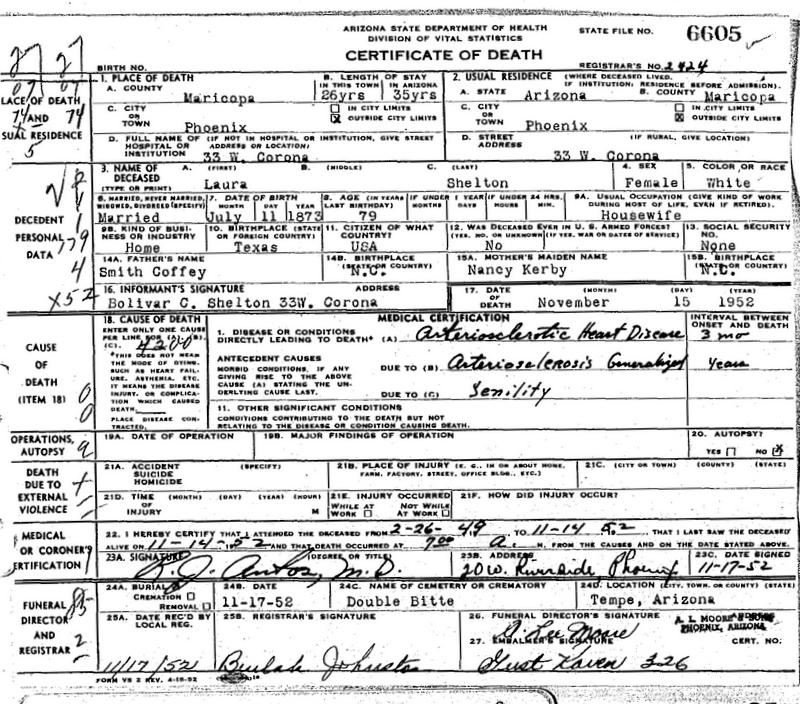 ARIZONA STATE DEPARTMENT OF HEALTH
DIVISION OF VITAL STATISTICS
STATE FILE NO. 6605
CERTIFICATE OF DEATH
BIRTH NO.
REGISTRAR'S NO. 2424
27 27
07 07
PLACE OF DEATH
74 AND 74
USUAL RESIDENCE
5
1. PLACE OF DEATH
A. COUNTY Maricopa
B. LENGTH OF STAY
IN THIS TOWN IN ARIZONA
26yrs 35yrs
2. USUAL RESIDENCE (WHERE DECEASED LIVED.
IF INSTITUTION: RESIDENCE BEFORE ADMISSION).
A. STATE Arizona B. COUNTY Maricopa
C. CITY OR TOWN Phoenix
IN CITY LIMITS
OUTSIDE CITY LIMITS
C. CITY OR TOWN Phoenix
IN CITY LIMITS
OUTSIDE CITY LIMITS
D. FULL NAME OF HOSPITAL OR INSTITUTION (IF NOT IN HOSPITAL OR INSTITUTION, GIVE STREET ADDRESS OR LOCATION)
33 W. Corona
D. STREET ADDRESS (IF RURAL, GIVE LOCATION)
33 W. Corona
DECEDENT
PERSONAL
DATA
179
4
X52
3. NAME OF DECEASED (TYPE OR PRINT)
A. (FIRST) B. (MIDDLE) C. (LAST)
Laura Shelton
4. SEX
Female
5. COLOR OR RACE
White
6. MARRIED, NEVER MARRIED, WIDOWED, DIVORCED (SPECIFY)
Married
7. DATE OF BIRTH
MONTH DAY YEAR
July 11 1873
8. AGE (IN YEARS LAST BIRTHDAY)
79
IF UNDER 1 YEAR
MONTHS DAYS
IF UNDER 24 HRS.
HOURS MIN.
9A. USUAL OCCUPATION (GIVE KIND OF WORK DURING MOST OF LIFE, EVEN IF RETIRED).
Housewife
9B. KIND OF BUSINESS OR INDUSTRY
Home
10. BIRTHPLACE (STATE OR FOREIGN COUNTRY)
Texas
11. CITIZEN OF WHAT COUNTRY?
USA
12. WAS DECEASED EVER IN U.S. ARMED FORCES?
(YES, NO, OR UNKNOWN) (IF YES, WAR OR DATES OF SERVICE)
No
13. SOCIAL SECURITY NO.
None
14A. FATHER'S NAME
Smith Coffey
14B. BIRTHPLACE (STATE OR COUNTRY)
N.C.
15A. MOTHER'S MAIDEN NAME
Nancy Kerby
15B. BIRTHPLACE
N.C.
16. INFORMANT'S SIGNATURE ADDRESS
Bolivar C. Shelton 33W. Corona
17. DATE OF DEATH (MONTH) (DAY) (YEAR)
November 15 1952
CAUSE
OF
DEATH
(ITEM 18)
0
0
18. CAUSE OF DEATH
ENTER ONLY ONE CAUSE PER LINE FOR (A), (B), (C).
4200
*THIS DOES NOT MEAN THE MODE OF DYING, SUCH AS HEART FAILURE, ASTHENIA, ETC. IT MEANS THE DISEASE, INJURY, OR COMPLICATION WHICH CAUSED DEATH.
PLACE DISEASE CONTRACTED.
MEDICAL CERTIFICATION
1. DISEASE OR CONDITIONS DIRECTLY LEADING TO DEATH* (A) Arteriosclerotic Heart Disease
INTERVAL BETWEEN ONSET AND DEATH
3 mo
ANTECEDENT CAUSES
MORBID CONDITIONS, IF ANY GIVING RISE TO THE ABOVE CAUSE (A) STATING THE UNDERLYING CAUSE LAST.
DUE TO (B) Arteriosclerosis Generalized years
DUE TO (C) Senility
11. OTHER SIGNIFICANT CONDITIONS
CONDITIONS CONTRIBUTING TO THE DEATH BUT NOT RELATING TO THE DISEASE OR CONDITION CAUSING DEATH.
OPERATIONS,
AUTOPSY
19A. DATE OF OPERATION
19B. MAJOR FINDINGS OF OPERATION
20. AUTOPSY?
YES NO
DEATH
DUE TO
EXTERNAL
VIOLENCE
21A. ACCIDENT SUICIDE HOMICIDE (SPECIFY)
21B. PLACE OF INJURY (E. G., IN OR ABOUT HOME, FARM, FACTORY, STREET, OFFICE BLDG., ETC.)
21C. (CITY OR TOWN) (COUNTY) (STATE)
21D. TIME OF INJURY (MONTH) (DAY) (YEAR) (HOUR) M
21E. INJURY OCCURRED
WHILE AT WORK NOT WHILE AT WORK
21F. HOW DID INJURY OCCUR?
MEDICAL
OR CORONER'S
CERTIFICATION
22. I HEREBY CERTIFY THAT I ATTENDED THE DECEASED FROM 2-26-49 TO 11-14 52, THAT I LAST SAW THE DECEASED
ALIVE ON 11-14-52 AND THAT DEATH OCCURRED AT 7:00 A M, FROM THE CAUSES AND ON THE DATE STATED ABOVE.
23A. SIGNATURE (DEGREE OR TITLE)
M.D.
23B. ADDRESS
20 W. Riverside Phoenix
23C. DATE SIGNED
11-17-52
FUNERAL
DIRECTOR
AND
REGISTRAR
2
24A. BURIAL
CREMATION
REMOVAL
24B. DATE
11-17-52
24C. NAME OF CEMETERY OR CREMATORY
Double Bitte
24D. LOCATION (CITY, TOWN, OR COUNTY) (STATE)
Tempe, Arizona
25A. DATE REC'D BY LOCAL REG.
11/17/52
25B. REGISTRAR'S SIGNATURE
Beulah Johnston
26. FUNERAL DIRECTOR'S SIGNATURE ADDRESS
A. L. MOORE & SONS
PHOENIX, ARIZONA
27. EMBALMER'S SIGNATURE CERT. NO.
326
FORM VS 2 REV. 4-15-52